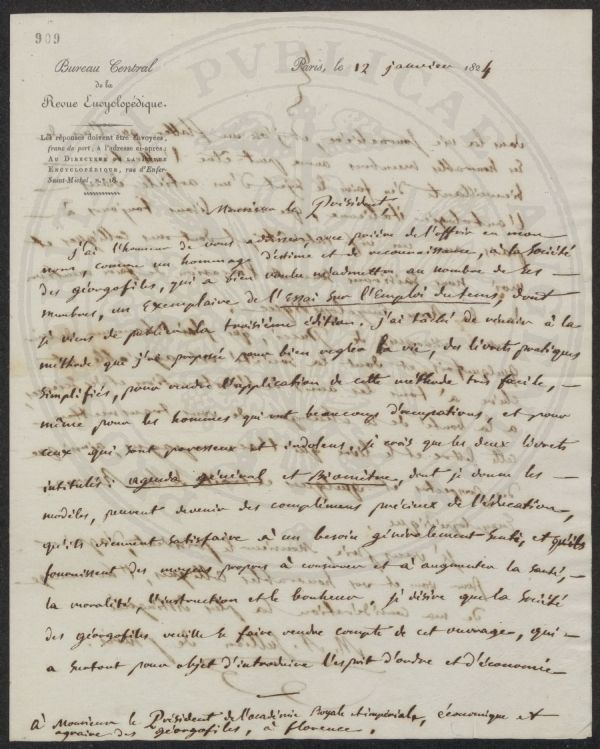 909
Bureau Central
de la
Revue Encyclopédique.
Les réponses doivent être envoyées,
franc de port, à l'adresse ci-après:
Au Directeur de la Revue
Encyclopédique, rue d'Enfer-
Saint-Michel, n.° 18.
Paris, le 12 janvier 1824
Monsieur le Président
j'ai l'honneur de vous adresser, avec prière de l'offrir en mon
nom, comme un hommage d'estime et de reconnaissance, à la Société
des géorgofiles, qui a bien voulu m'admettre au nombre de ses
membres, un Exemplaire de l'Essai sur l'Emploi du tems, dont
je viens de publier la troisième édition. j'ai tâché de réunir à la
méthode que j'ai proposée pour bien régler la vie, des livrets pratiques
simplifiés, pour rendre l'application de cette méthode très facile,
même pour les hommes qui ont beaucoup d'occupations, et pour
ceux qui sont paresseux et indolens. je crois que les deux livrets
intitulés: agenda général et Biomètre, dont je donne les
modèles, peuvent devenir des complémens précieux de l'éducation,
qu'ils viennent satisfaire à un besoin généralement senti, et qu'ils
fournissent des moyens propres à conserver et à augmenter la santé,
la moralité, l'instruction et le bonheur. je désire que la Société
des géorgofiles veuille se faire rendre compte de cet ouvrage, qui
a surtout pour objet d'introduire l'esprit d'ordre et d'économie
à Monsieur le Président de l'académie Royale et impériale, économique et
agraire des géorgofiles, à florence.